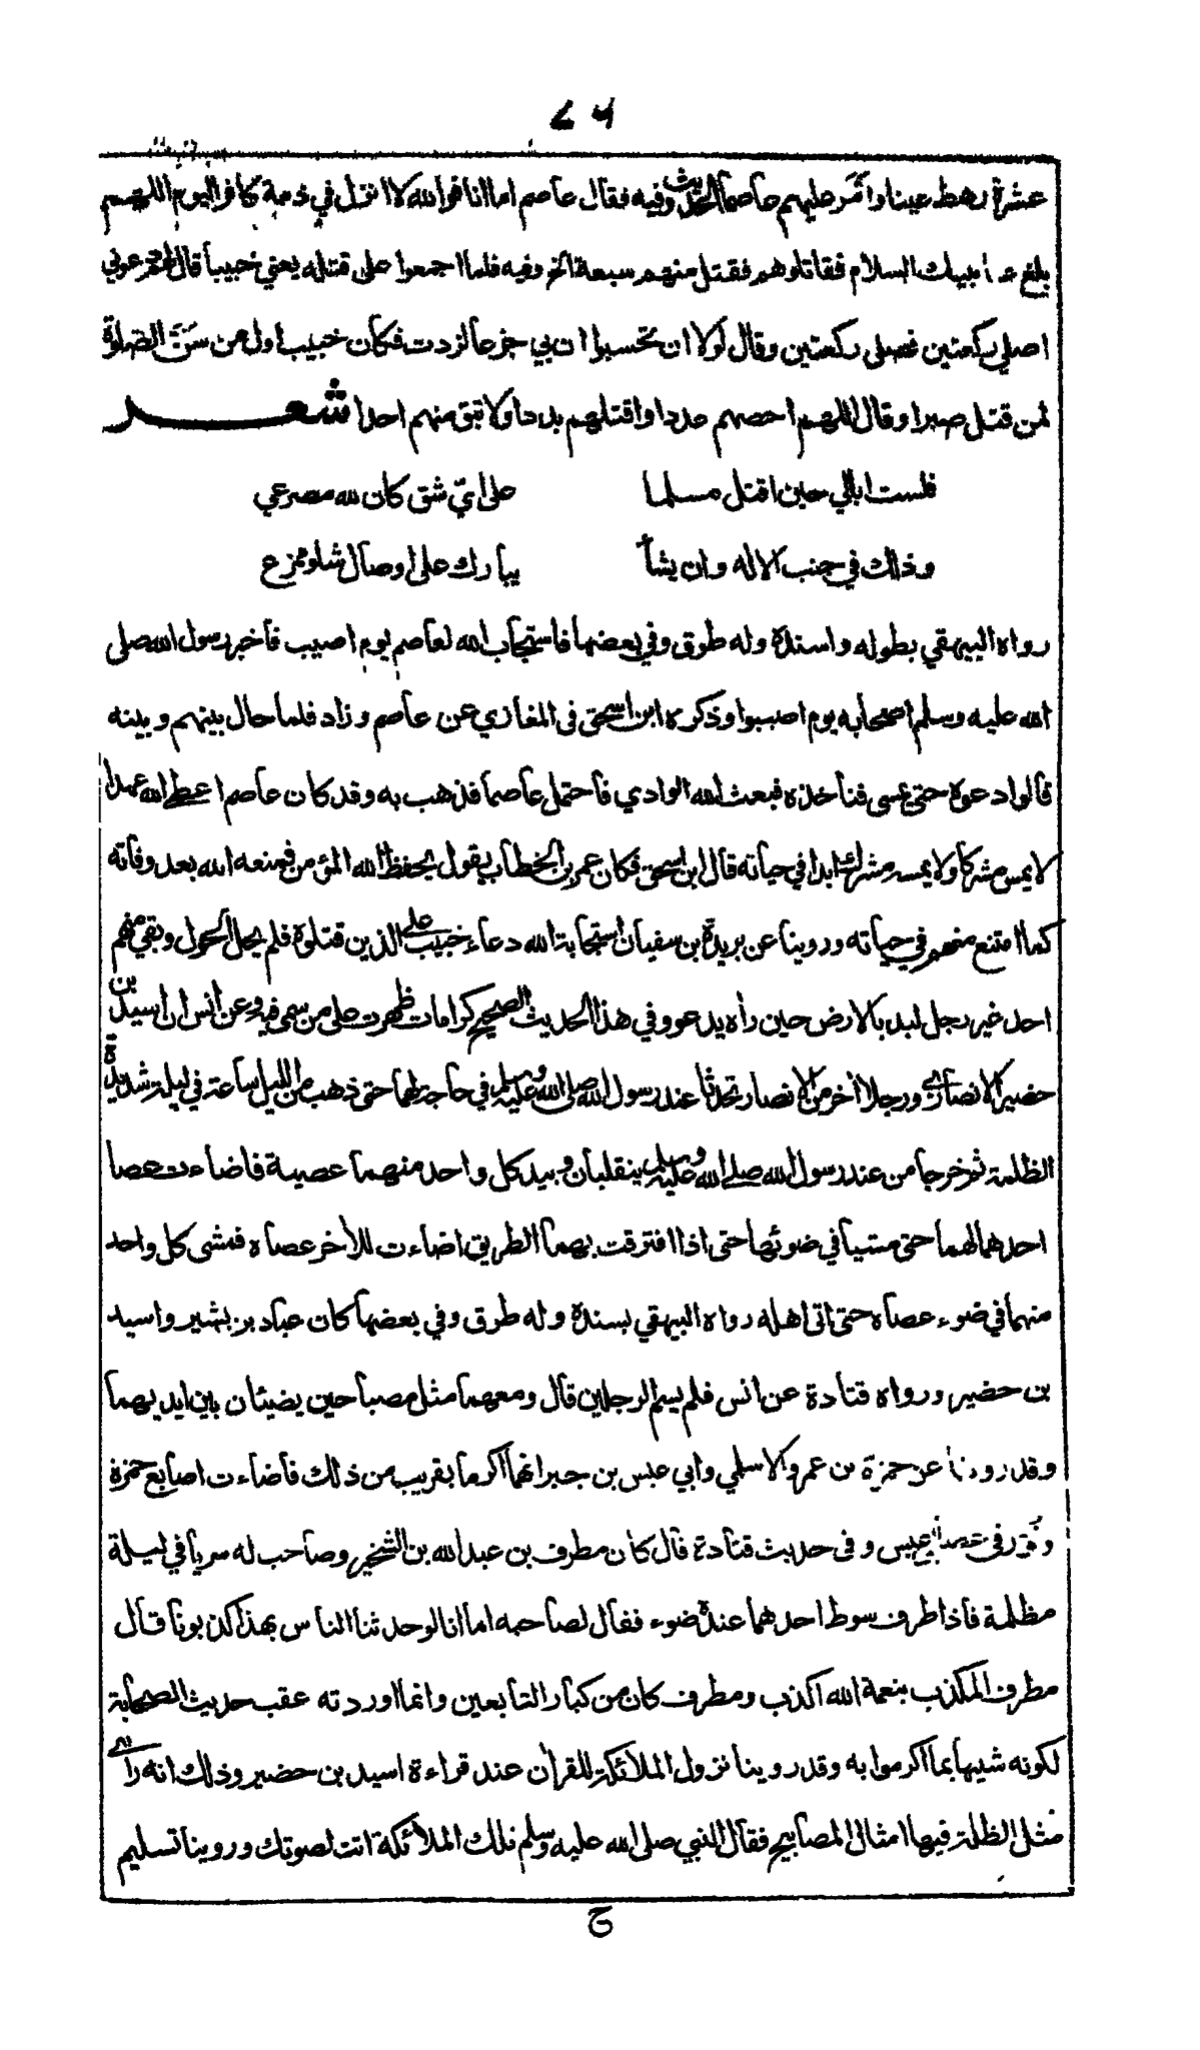 عشرة رهط عينا وأمّر عليهم عاصما الحديث وفيه فقال عاصم اما انا فوالله لا انزل في ذمة كافر اليوم اللهم
بلغ عنا نبيك السلام فقاتلوهم فقتل منهم سبعة الخ وفيه فلما اجمعوا على قتله يعني خبيبا قال لهم دعوني
اصلي ركعتين فصلى ركعتين وقال لولا ان تحسبوا ان بي جزعا لزدت فكان خبيب اول من سَنَّ الصلوة
لمن قتل صبرا وقال اللهم احصهم عددا واقتلهم بددا ولا تبق منهم احدا شعر
فلست ابالي حين اقتل مسلما على ايّ شق كان لله مصرعي
وذلك في جنب الاله وان يشأ يبارك على اوصال شلو ممزع
رواه البيهقي بطوله واسنده وله طرق وفي بعضها فاستجاب الله لعاصم يوم اصيب فأخبر رسول الله صلى
الله عليه وسلم اصحابه يوم اصيبوا وذكره ابن اسحق فى المغازي عن عاصم وزاد فلما حال بينهم وبينه
قالوا دعوه حتى يمسى فنأخذه فبعث الله الوادي فاحتمل عاصما فذهب به وقد كان عاصم اعطى الله عهدا
لا يمس مشركا ولا يمسه مشرك ابدا في حياته قال ابن اسحق فكان عمر بن الخطاب يقول يحفظ الله المؤمن فمنعه الله بعد وفاته
كما امتنع منهم في حياته وروينا عن بريدة بن سفيان استجابة الله دعاء خبيب على الذين قتلوه فلم يحل الحول وبقي منهم
احد غير رجل لبد بالارض حين رأه يدعو وفي هذا الحديث الصحيح كرامات ظهرت على من سمي فيه وعن انس ان اسيد بن
حضير الانصاري ورجلا أخر من الانصار تحدثا عند رسول الله صلى الله عليه وسلم في حاجة لهما حتى ذهب من الليل ساعة في ليلة شديدة
الظلمة ثم خرجا من عند رسول الله صلے الله عليه وسلم ينقلبان وبيد كل واحد منهما عصية فاضاءت عصا
احدهما لهما حتى مشيا في ضوئها حتى اذا افترقت بهما الطريق اضاءت للأخر عصاه فمشى كل واحد
منهما في ضوء عصاه حتى اتى اهله رواه البيهقي بسنده وله طرق وفي بعضها كان عباد بن بشير واسيد
بن حضير ورواه قتادة عن انس فلم يسم الرجلين قال ومعهما مثل مصباحين يضيئان بين ايديهما
وقد روينا عن حمزة بن عمرو الاسلمي وابي عبس بن جبر انهما اكرما بقريب من ذلك فأضاءت اصابع حمزة
ونُوِّر في عصا ابي عبس وفى حديث قتادة قال كان مطرف بن عبد الله بن الشخير وصاحب له سريا في ليلة
مظلمة فأذا طرف سوط احدهما عنده ضوء فقال لصاحبه اما انا لو حدثنا الناس بهذا كذبونا قال
مطرف المكذب بنعمة الله اكذب ومطرف كان من كبار التابعين وانما اوردته عقب حديث الصحابة
لكونه شبيها بما اكرموا به وقد روينا نزول الملائكة للقرأن عند قراءة اسيد بن حضير وذلك انه رأى
مثل الظلة فيها امثال المصابيح فقال النبي صلى الله عليه وسلم تلك الملائكة اتت لصوتك وروينا تسليم
ح